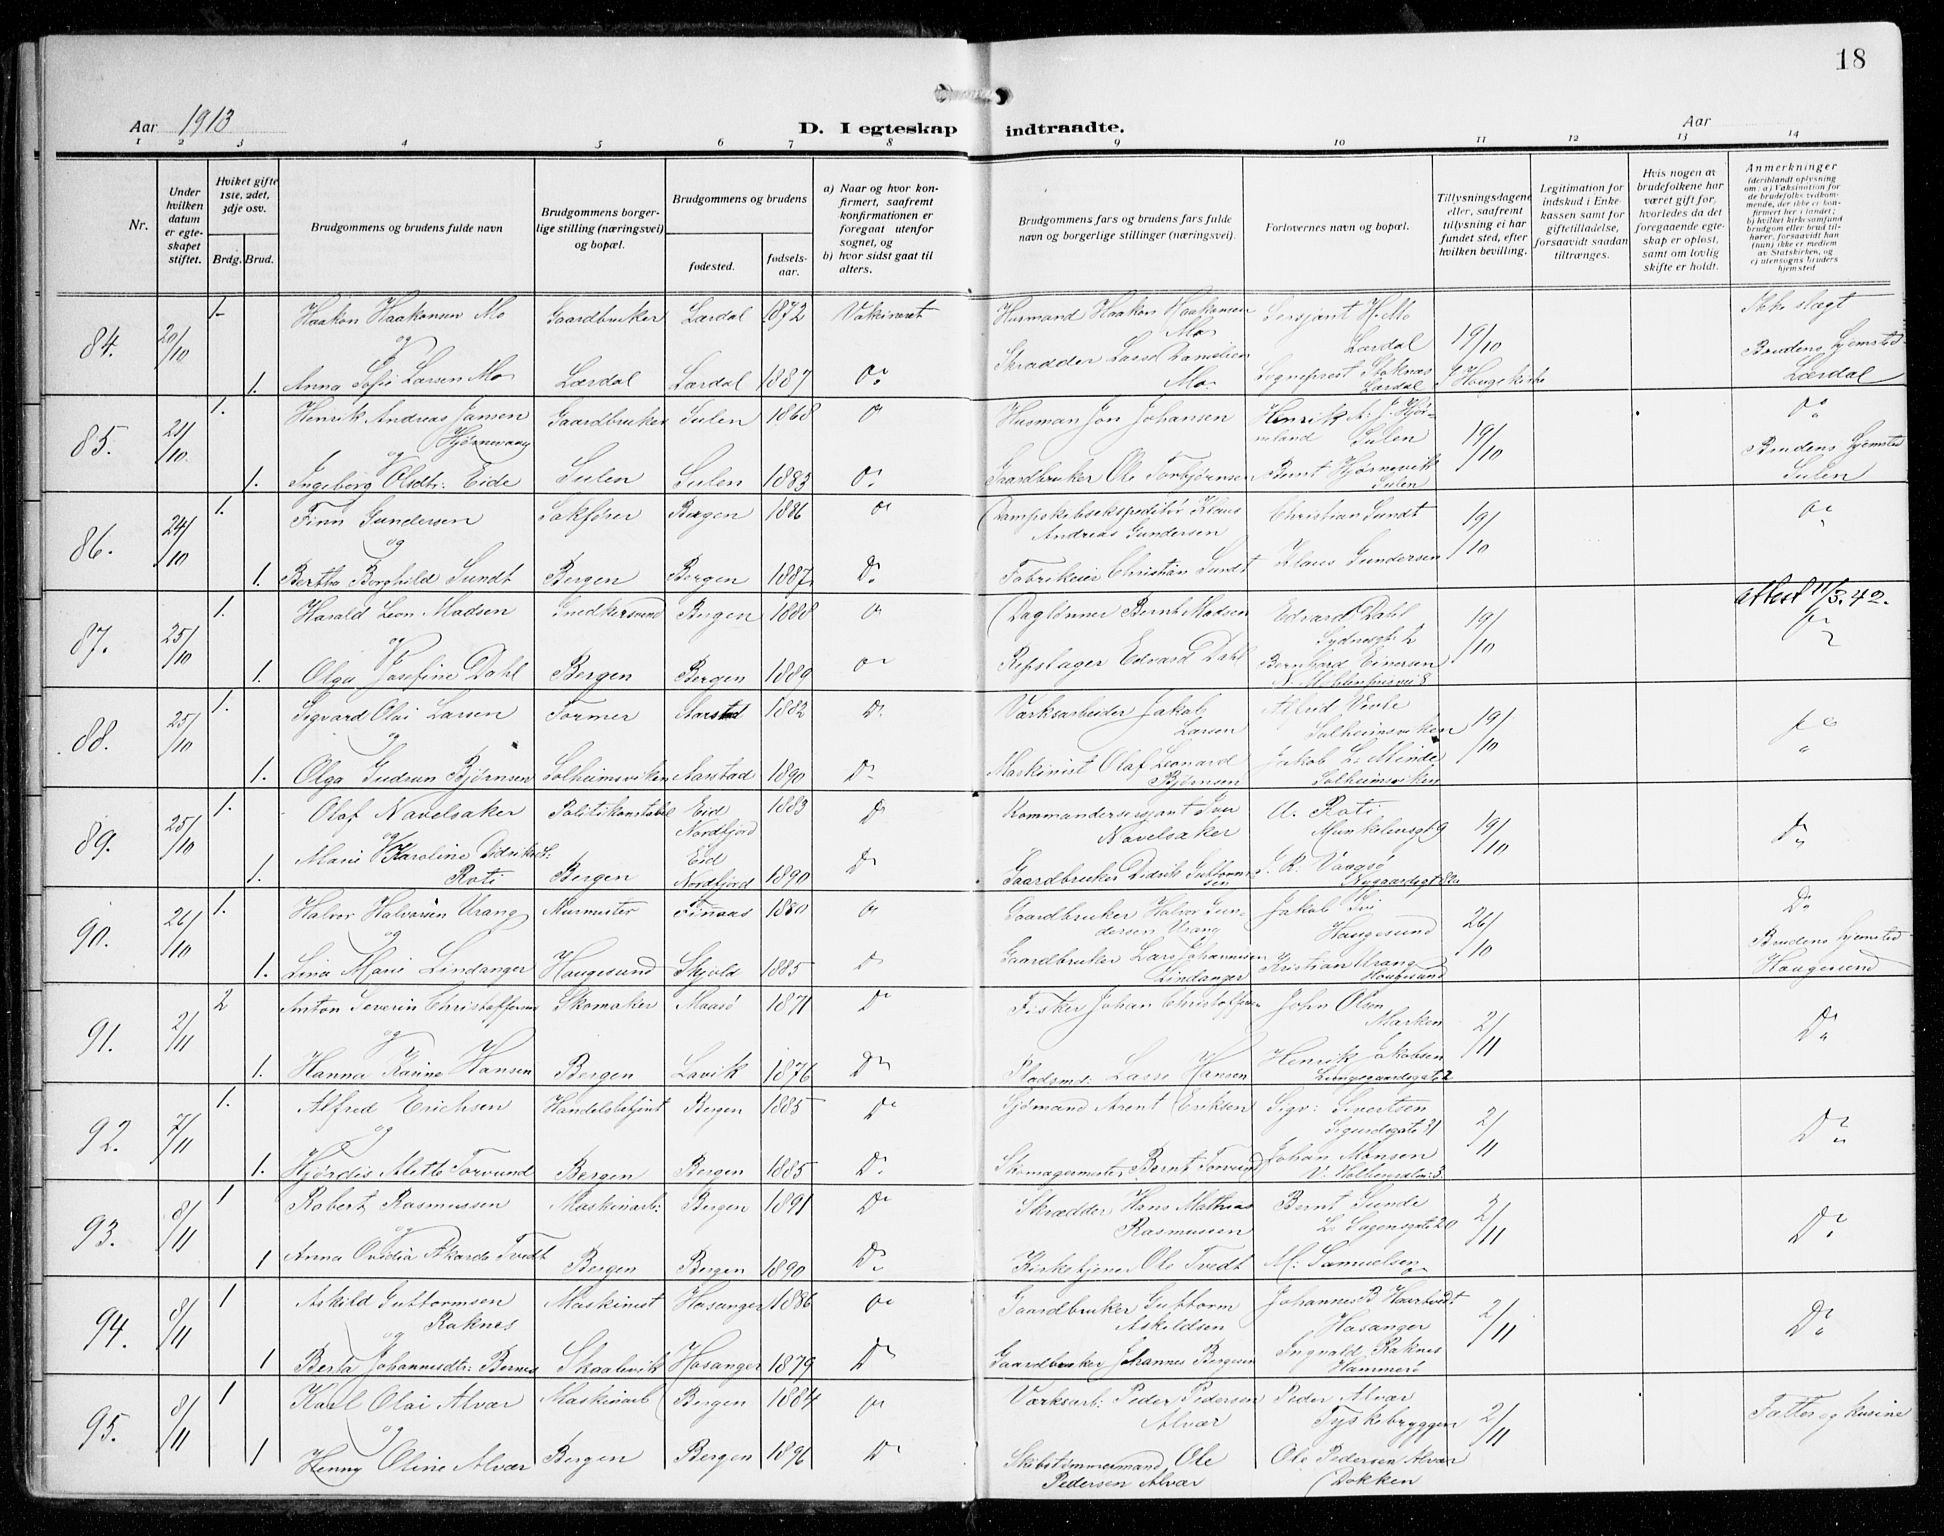 18
Aar 1913
D. I egteskap indtraadte.
Aar
1 2 3 4 5 6 7 8 9 10 11 12 13 14
Nr.
Under hvilken datum er egteskapet stiftet.
Hviket gifte 1ste, 2det, 3dje osv.
Brdg. Brud.
Brudgommens og brudens fulde navn
Brudgommens borgerlige stilling (næringsvei) og bopæl.
Brudgommens og brudens
fødested.
fødselsaar.
a) Naar og hvor konfirmert, saafremt konfirmationen er foregaat utenfor sognet, og
b) hvor sidst gaat til alters.
Brudgommens fars og brudens fars fulde navn og borgerlige stillinger (næringsvei).
Forlovernes navn og bopæl.
Tillysningsdagene eller, saafremt tillysning ei har fundet sted, efter hvilken bevilling.
Legitimation for indskud i Enkekassen samt for giftetilladelse, forsaavidt saadan tiltrænges.
Hvis nogen av brudefolkene har været gift før, hvorledes da det foregaaende egteskap er opløst, samt om lovlig skifte er holdt.
Anmerkninger
84. 20/10 1. Haakon Haakonsen Mo Gaardbruker Lærdal 1872 Vakcineret Husmand Haakon Haakonsen Mo Sersjant H. Mo Lærdal 19/10 Ikke slegt
og
1. Anna Sofie Larsen Mo Lærdal Lærdal 1887 Do Skradder Lasse Danielsen Mo Lærdal Brudens hjemsted Lærdal
85. 21/10 1. Henrik Andreas Jansen Gaardbruker Sulen 1868 Do Husman Jon Johansen Sulen 19/10 Do
og
1. Ingeborg Olsdtr. Eide Sulen Sulen 1883 Do Gaardbruker Ole Torbjørnsen Sulen Brudens hjemsted Sulen
86. 24/10 1. Finn Gundersen Sakfører Bergen 1886 Do Dampskibsekspeditør Klaus Andreas Gundersen Christian Sundt 19/10 Do
og
1. Bertha Borghild Sundt Bergen Bergen 1887 Do Fabrikeier Christian Sundt Klaus Gundersen
87. 25/10 1. Harald Leon Madsen Snedkersvend Bergen 1888 Do Daglønner Bernt Madsen Edvard Dahl 19/10 Attest 11/3.42.
og
1. Olga Josefine Dahl Bergen Bergen 1889 Do Repslager Edvard Dahl Bernhard Einersen
88. 25/10 1. Sigvard Olai Larsen Former Aarstad 1882 Do Værksarbeider Jakob Larsen Solheimsviken 19/10 Do
og
1. Olga Gudrun Bjørnsen Solheimsviken Aarstad 1890 Do Maskinist Olaf Leonard Bjørnsen Jakob L. Minde Solheimsviken
89. 25/10 1. Olaf Navelsaker Politikonstabel Eid Nordfjord 1883 Do Kommandersersjant Iver Navelsaker A. Roti Munkelvsgt 9 19/10 Do
og
1. Marie Karoline Didriksd: Roti Bergen Eid Nordfjord 1890 Do Gaardbruker Didrik Guttormsen Nygaardsgt 82a
90. 26/10 1. Halvor Halvorsen Urang Murmester Finaas 1880 Do Gaardbruker Halvor Gundersen Urang Haugesund 26/10 Do
og
1. Lina Marie Lindanger Haugesund Skjold 1885 Do Gaardbruker Lars Johannesen Lindanger Kristian Urang Haugesund Brudens hjemsted Haugesund
91. 2/11 2 Anton Severin Christoffersen Skomaker Maasø 1871 Do Fisker Johan Christoffersen John Olsen Marken 2/11 Do
og
1. Hanna Karine Hansen Bergen Lavik 1876 Do Pladsmd: Lasse Hansen Henrik Jakobsen
92. 7/11 1. Alfred Erichsen Handelsbetjent Bergen 1885 Do Sjømand Arent Eriksen Sigv: Sivertsen Sigurdsgate 31 2/11 Do
og
1. Hjørdis Alette Torvund Bergen Bergen 1885 Do Skomagermester Bernt Torvund Johan Monsen
93. 8/11 1 Robert Rasmussen Maskinarb: Bergen 1891 Do Skrædder Hans Mathias Rasmussen Bernt Sunde L. Sagensgate 20 2/11 Do
og
1 Anna Ovidia Tvedt Bergen Bergen 1890 Do Kirketjener Ole Tvedt M. Samuelsen
94. 8/11 1 Askild Guttormsen Raknes Maskinist Hosanger 1886 Do Gaardbruker Guttorm Askildsen Hosanger 2/11 Do
og
1 Berta Johannesdtr: Bernes Skaalevik Hosanger 1879 Do Gaardbruker Johannes Bergesen Ingvald Raknes Hammerø
95. 8/11 1 Karl Olai Alvær Maskinarb Bergen 1884 Do Værksarb: Peder Pedersen Alvær Peder Alvær Tyskebryggen 2/11 Fætter og kusine
og
1 Henny Oline Alvær Bergen Bergen 1896 Do Skibstømmermand Ole Pedersen Alvær Ole Pedersen Alvær Dokken